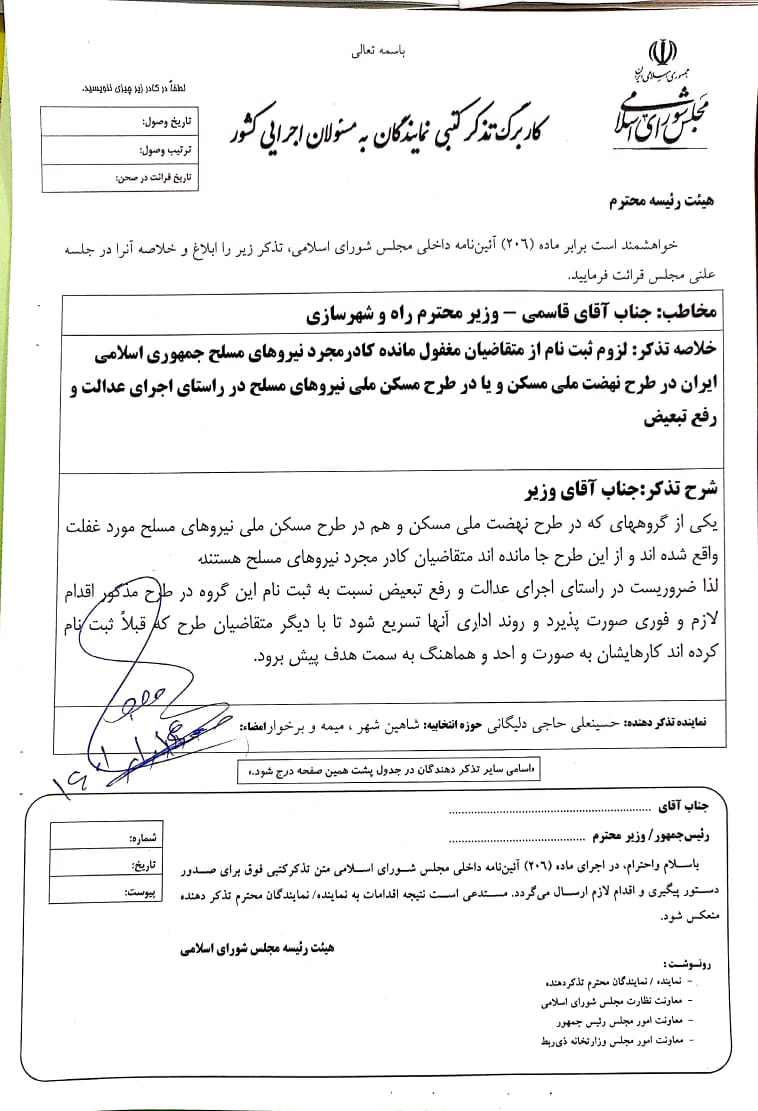 باسمه تعالی
جمهوری اسلامی ایران
مجلس شورای اسلامی
لطفاً در کادر زیر چیزی ننویسید.
تاریخ وصول:
ترتیب وصول:
تاریخ قرائت در صحن:
کاربرگ تذکر کتبی نمایندگان به مسئولان اجرایی کشور
هیئت رئیسه محترم
خواهشمند است برابر ماده (۲۰۶) آئین‌نامه داخلی مجلس شورای اسلامی، تذکر زیر را ابلاغ و خلاصه آنرا در جلسه
علنی مجلس قرائت فرمایید.
مخاطب: جناب آقای قاسمی – وزیر محترم راه و شهرسازی
خلاصه تذکر: لزوم ثبت نام از متقاضیان مغفول مانده کادرمجرد نیروهای مسلح جمهوری اسلامی
ایران در طرح نهضت ملی مسکن و یا در طرح مسکن ملی نیروهای مسلح در راستای اجرای عدالت و
رفع تبعیض
شرح تذکر:جناب آقای وزیر
یکی از گروههای که در طرح نهضت ملی مسکن و هم در طرح مسکن ملی نیروهای مسلح مورد غفلت
واقع شده اند و از این طرح جا مانده اند متقاضیان کادر مجرد نیروهای مسلح هستند.
لذا ضروریست در راستای اجرای عدالت و رفع تبعیض نسبت به ثبت نام این گروه در طرح مذکور اقدام
لازم و فوری صورت پذیرد و روند اداری آنها تسریع شود تا با دیگر متقاضیان طرح که قبلاً ثبت نام
کرده اند کارهایشان به صورت و احد و هماهنگ به سمت هدف پیش برود.
نماینده تذکر دهنده: حسینعلی حاجی دلیگانی حوزه انتخابیه: شاهین شهر ، میمه و برخوار امضاء:
«اسامی سایر تذکر دهندگان در جدول پشت همین صفحه درج شود.»
جناب آقای ..........................................
رئیس‌جمهور/ وزیر محترم ..............................
شماره:
تاریخ:
پیوست:
باسلام واحترام، در اجرای ماده (۲۰۶) آئین‌نامه داخلی مجلس شورای اسلامی متن تذکرکتبی فوق برای صدور
دستور پیگیری و اقدام لازم ارسال می‌گردد. مستدعی است نتیجه اقدامات به نماینده/ نمایندگان محترم تذکر دهنده
منعکس شود.
هیئت رئیسه مجلس شورای اسلامی
رونوشت:
- نماینده / نمایندگان محترم تذکردهنده
- معاونت نظارت مجلس شورای اسلامی
- معاونت امور مجلس رئیس جمهور
- معاونت امور مجلس وزارتخانه ذی‌ربط